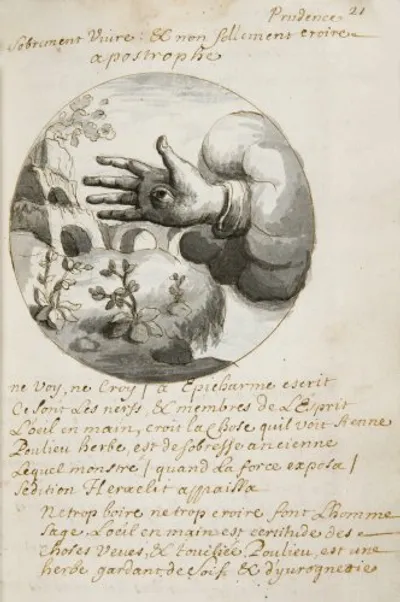 Prudence 21
Sobrement Vivre: & non follement croire
apostrophe
ne voy, ne croy / a Epicharme escrit
Ce sont les nerfs, & membres de L'Esprit
L'oeil en main, croit la chose quil voit
Poulieu herbe, est de sobresse ancienne
Lequel monstre / quand la force exposa /
sedition Heraclit appaissa
Ne trop boire ne trop croire font Lhomme
sage, L'oeil en main est certitude des
choses veues, & touchée, Poulieu, est une
herbe gardant de soif & d'yurognerie